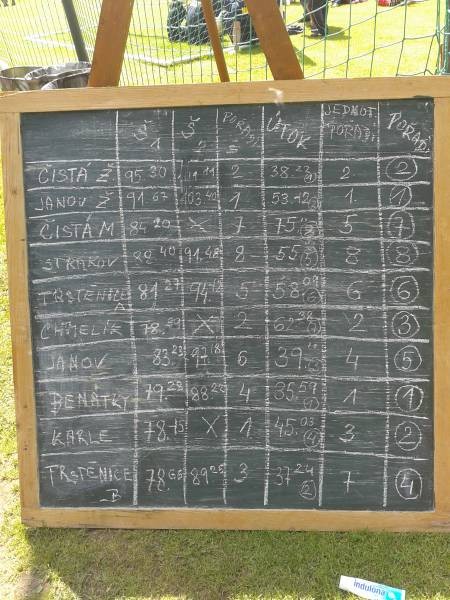 Š 1 Š 2 POŘADÍ Š ÚTOK JEDNOT. POŘADÍ POŘADÍ
ČISTÁ Ž 95.30 2 38. 2 2
JANOV Ž 91.67 103.40 1 53. 1 1
ČISTÁ M 84.20 X 7 75. 5 7
STRAKOV 88.40 91.48 8 55. 8 8
TRSTĚNICE A 81.27 94. 5 58.09 6 6
CHMELÍK 78. X 2 62. 2 3
JANOV 83.23 92.18 6 39. 4 5
BENÁTKY 79.23 88.22 4 35.59 1 1
KARLE 78.45 X 1 45.03 3 2
TRSTĚNICE B 78.66 89.25 3 37.24 2 7 4
indulona